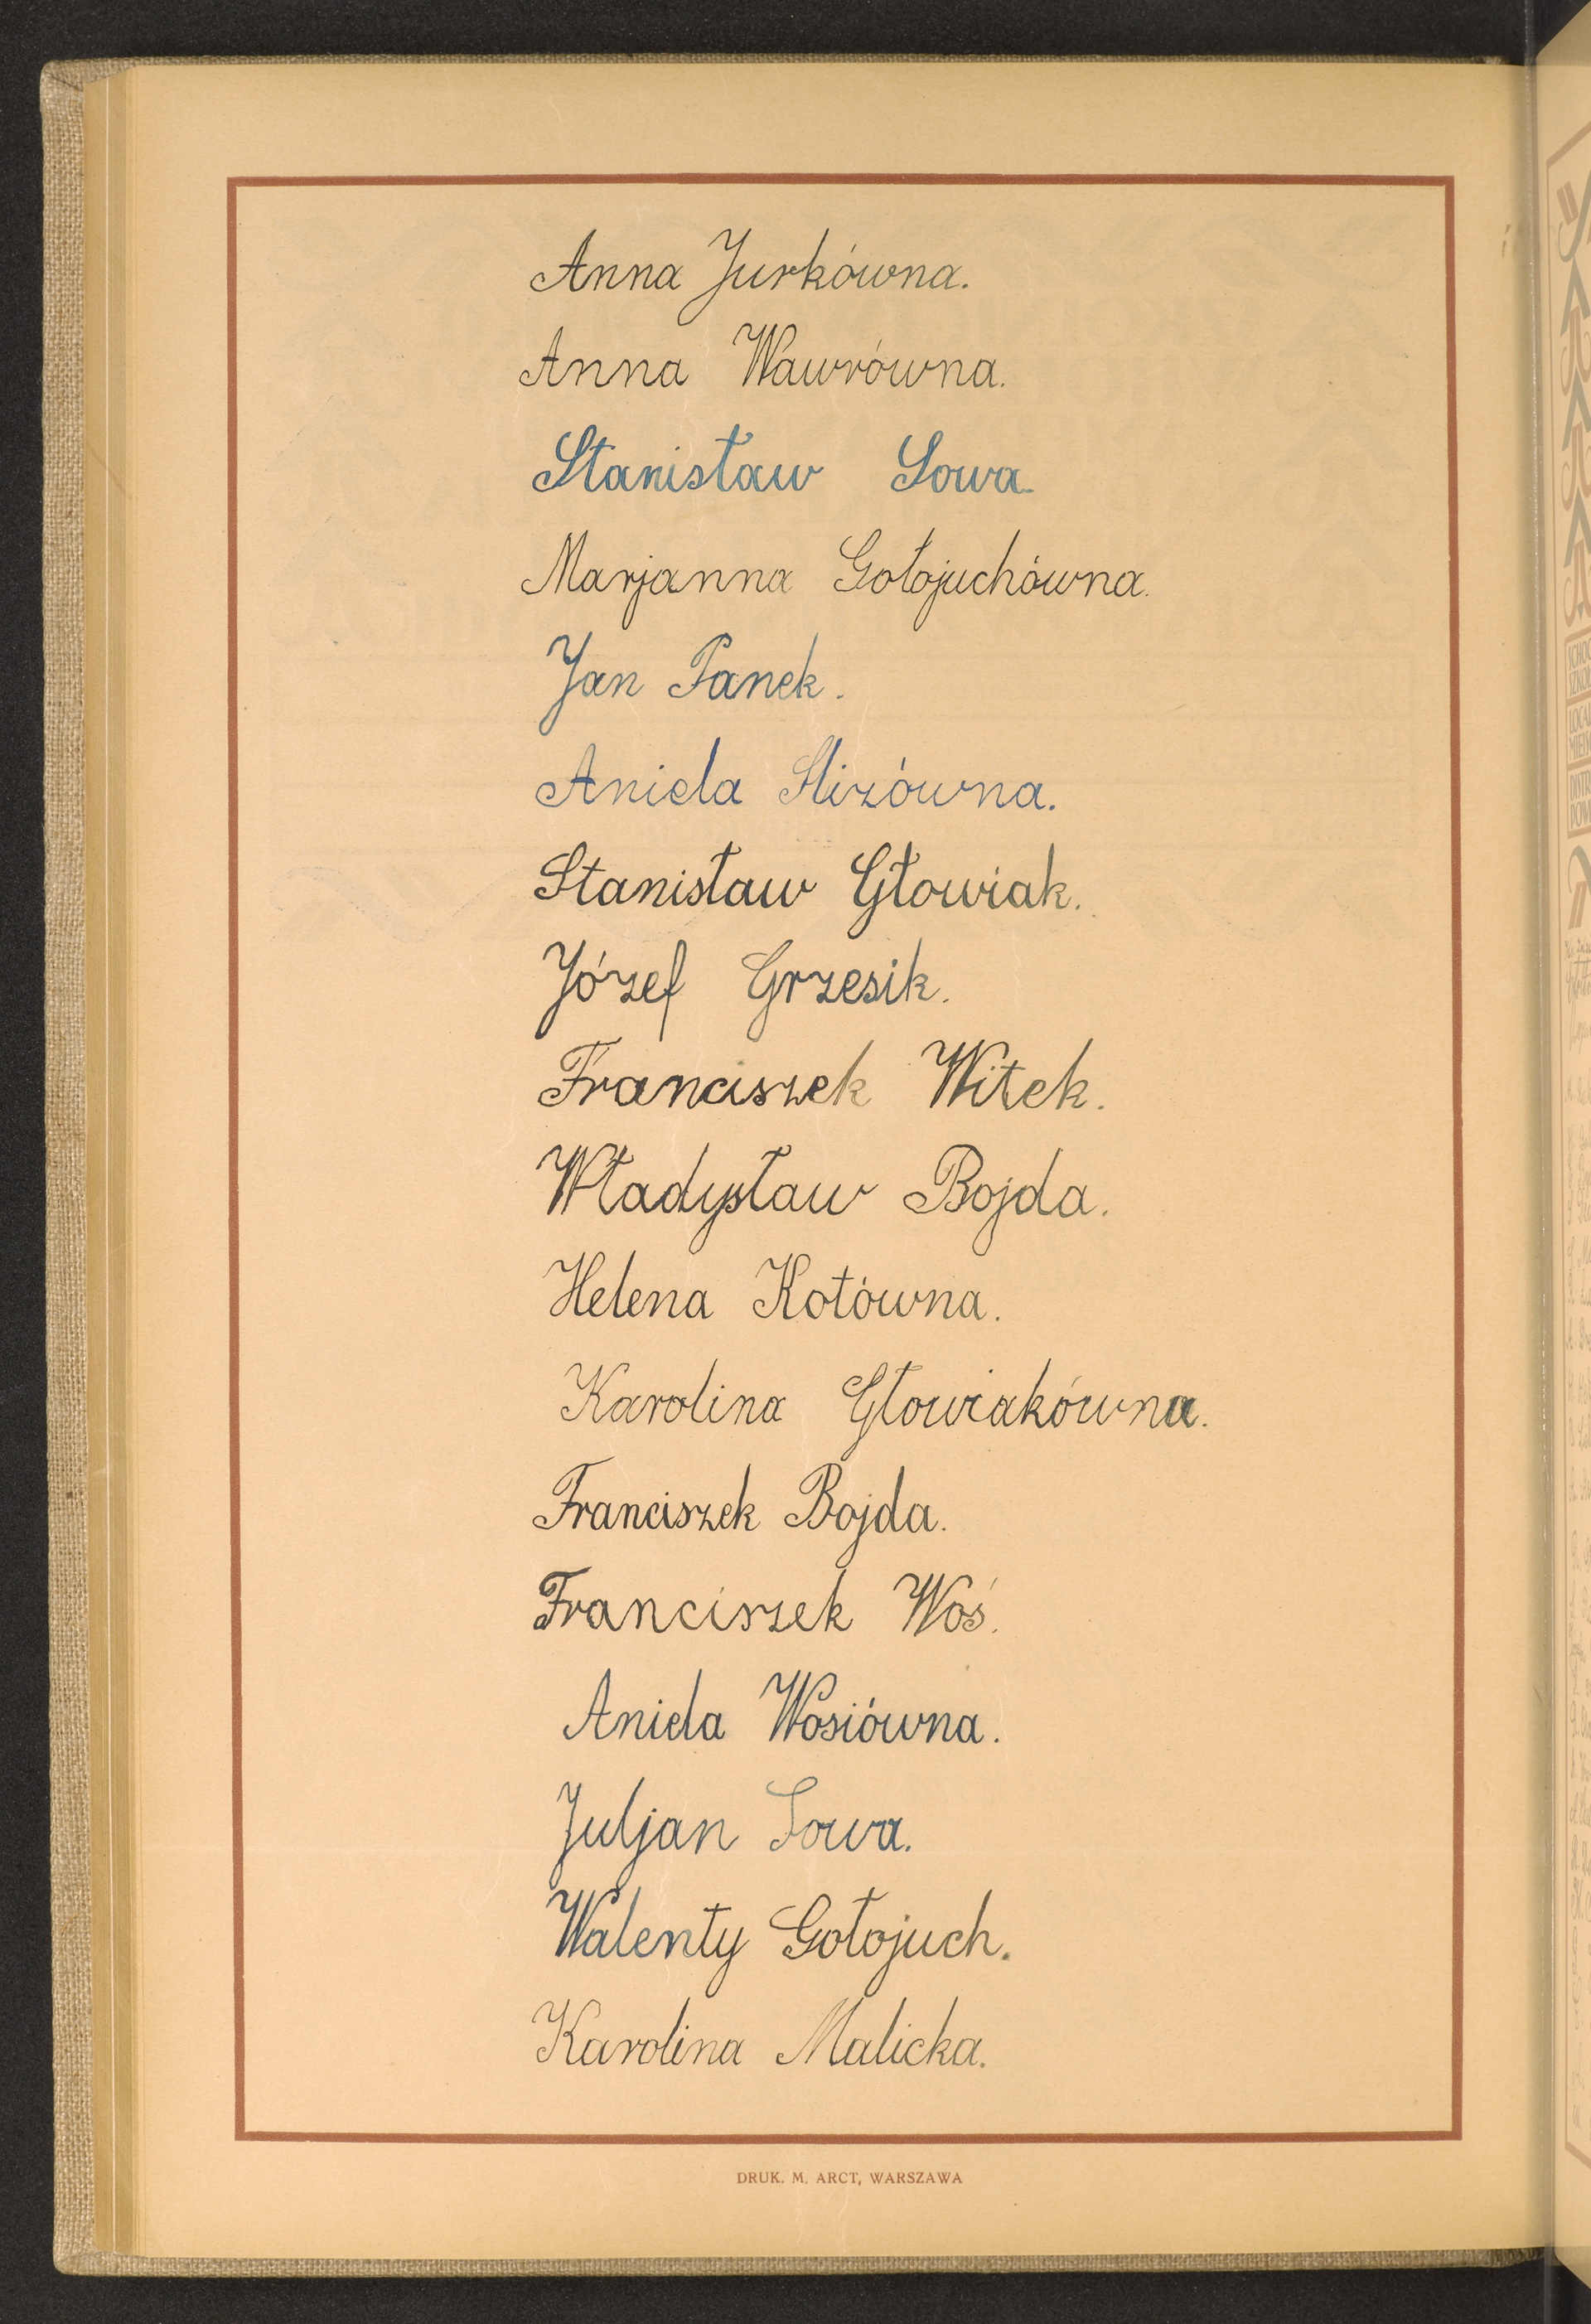 Anna Jurkówna.
Anna Wawrówna.
Stanisław Sowa
Marjanna Gołojuchówna.
Jan Panek.
Aniela Slizówna.
Stanisław Głowiak.
Józef Grzesik.
Franciszek Witek.
Władysław Bojda.
Helena Kotówna.
Karolina Głowiakówna.
Franciszek Bojda.
Franciszek Woś.
Aniela Wosiówna.
Juljan Sowa.
Walenty Gołojuch.
Karolina Malicka.
DRUK. M. ARCT, WARSZAWA